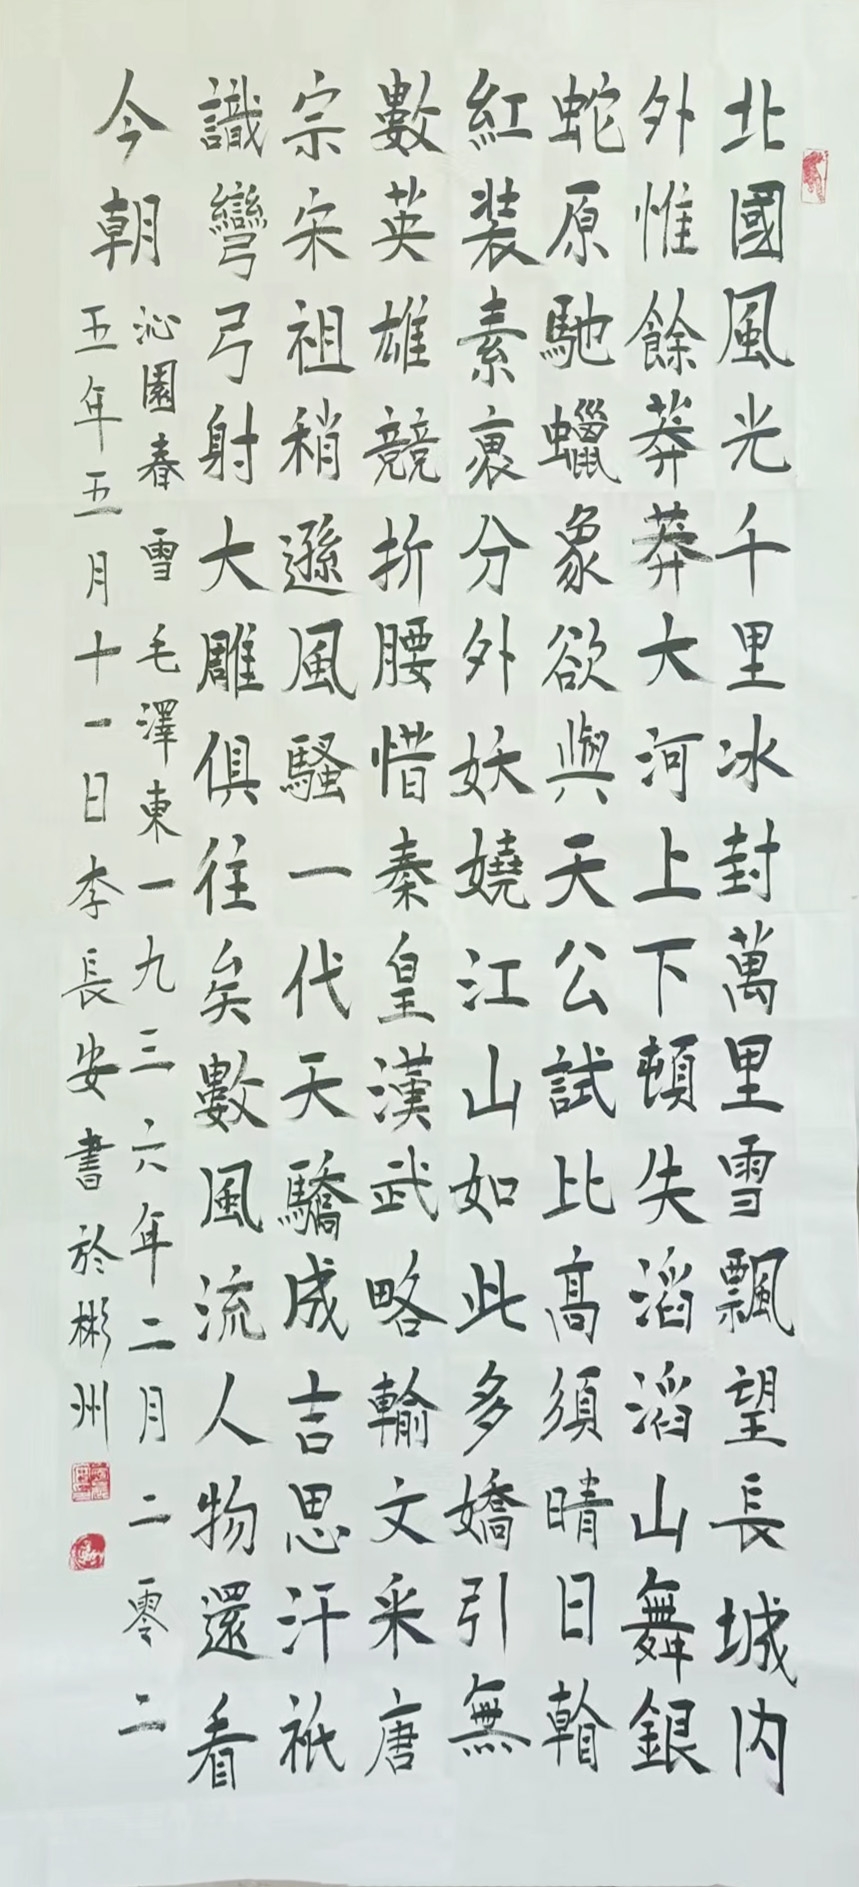 北國風光千里冰封萬里雪飄望長城内
外惟餘莽莽大河上下頓失滔滔山舞銀
蛇原馳蠟象欲與天公試比高須晴日㫋
紅装素裹分外妖嬈江山如此多嬌引無
數英雄競折腰惜秦皇漢武略輸文采唐
宗宋祖稍遜風騷一代天驕成吉思汗祇
識彎弓射大雕俱往矣數風流人物還看
今朝
沁園春雪毛澤東一九三六年二月二零二
五年五月十一日李長安書於彬州